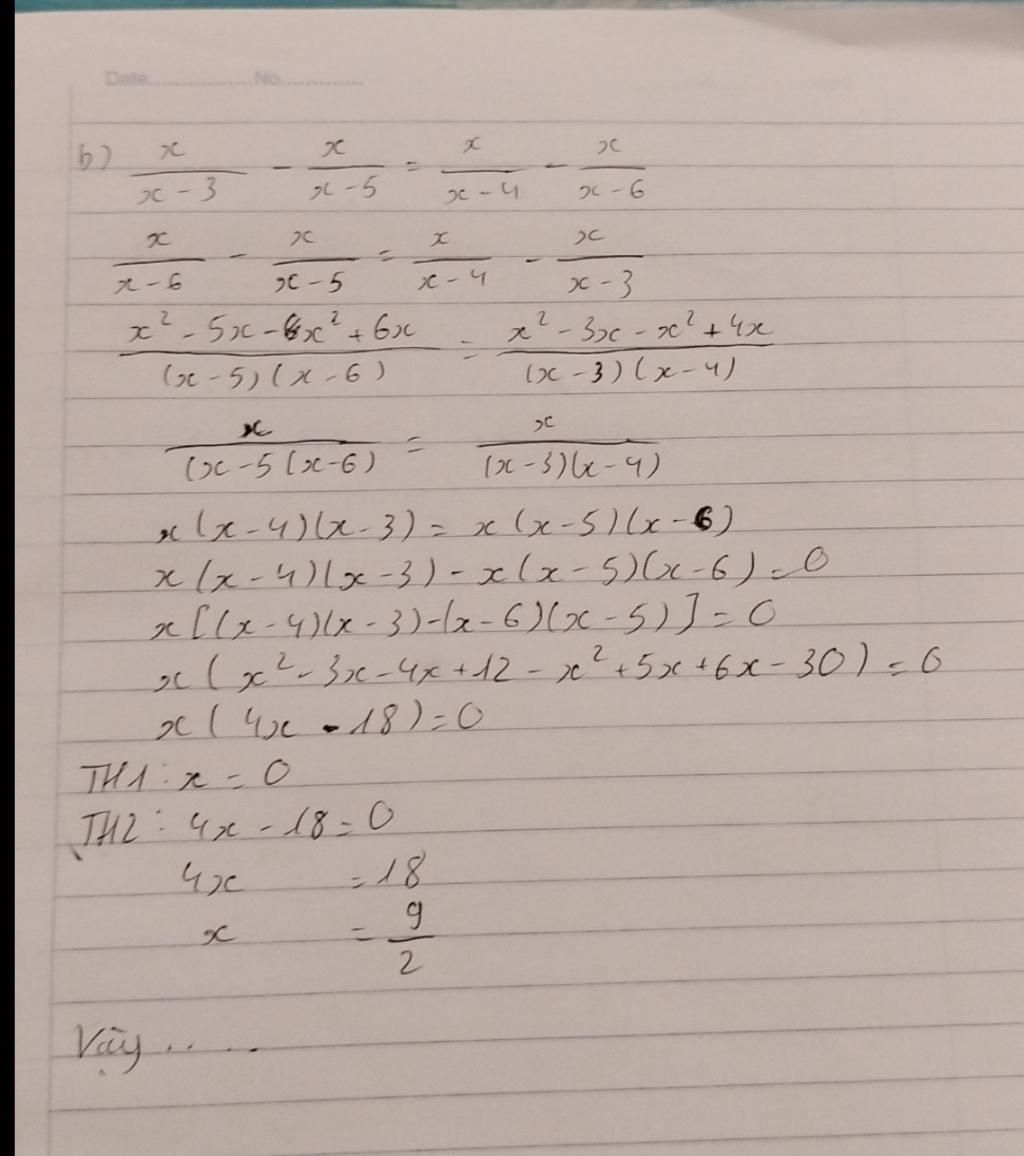 Date................No............
b) x/(x-3) - x/(x-5) = x/(x-4) - x/(x-6)
x/(x-6) - x/(x-5) = x/(x-4) - x/(x-3)
(x² - 5x - x² + 6x)/((x-5)(x-6)) = (x² - 3x - x² + 4x)/((x-3)(x-4))
x/((x-5(x-6)) = x/((x-3)(x-4))
x(x-4)(x-3) = x(x-5)(x-6)
x(x-4)(x-3) - x(x-5)(x-6) = 0
x[(x-4)(x-3)-(x-6)(x-5)] = 0
x(x² - 3x - 4x + 12 - x² + 5x + 6x - 30) = 0
x(4x - 18) = 0
TH1: x = 0
TH2: 4x - 18 = 0
4x = 18
x = 9/2
Vậy .....